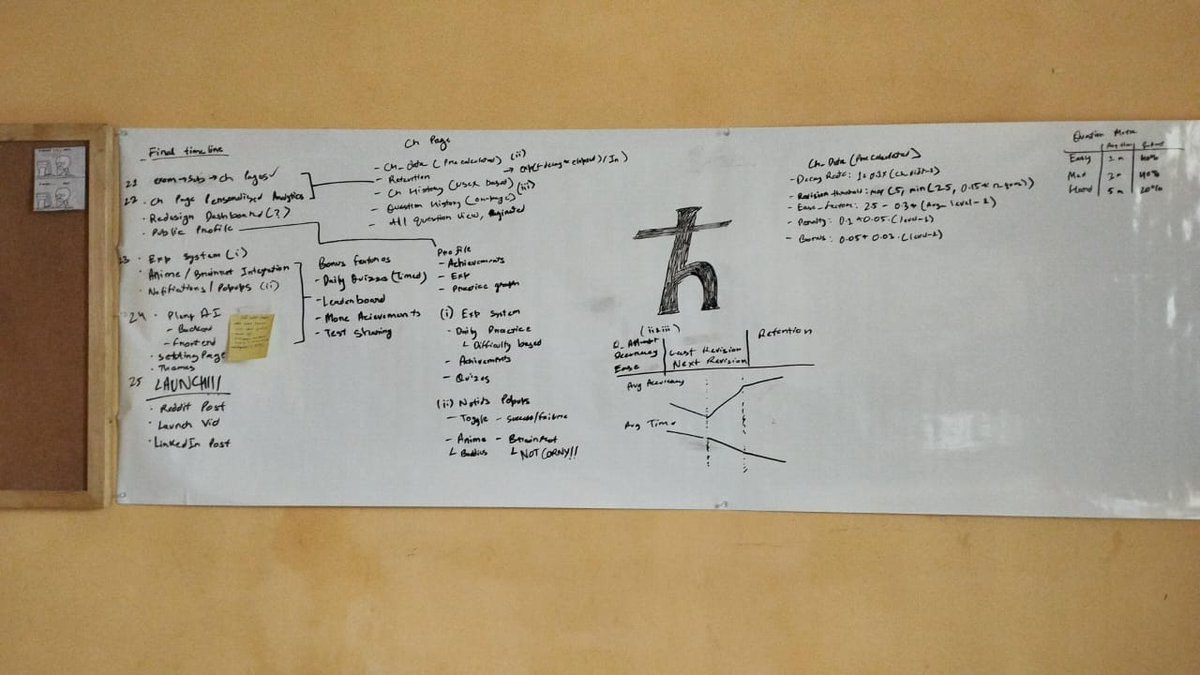 Final timeline
21 exam → sub → ch pages ✓
22. Ch Page Personalised Analytics
· Redesign Dashboard (?)
· Public Profile
23 · Exp System (i)
· Anime / Brainrot Integration
· Notifications / Popups (ii)
24 · Plang A-I
- Backend
- Frontend
· Setting Page
· Themes
25 LAUNCH!!!
· Reddit Post
· Launch Vid
· LinkedIn Post
Ch Page
- Ch_Data (Pre calculated) (ii)
- Retention → exp(-decay * elapsed) / ln)
- Ch History (User based) (iii)
- Question History
- All Question View, Paginated
Bonus features
- Daily Quizzes (Timed)
- Leaderboard
- More Acievements
- Test Sharing
Profile
- Achievements
- Exp
- Practice graph
(i) Exp System
- Daily Practice
└ Difficulty based
- Achievements
- Quizes
(ii) Notifs Popups
- Toggle - success/failure
- Anime - Brainrot
└ NOT CORNY!!
ħ
(ii & iii)
Q_Attempt
Accuracy
Ease
Last Revision
Next Revision
Retention
Avg Accuracy
Avg Time
Ch_Data (Pre calculated)
- Decay Rate:
- Revision threshold:
- Ease_factor: 2.5 - 0.3 * (Avg_level - 1)
- Penalty: 0.1 + 0.05 · (level - 1)
- Bonus: 0.05 + 0.03 · (level - 1)
Question Meta
Easy 1 m 40%
Med 40%
Hard 5 m 20%